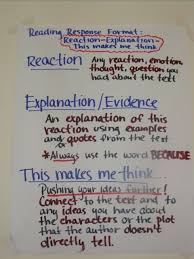 Reading Response Format:
Reaction-Explanation-
This makes me think
Reaction Any reaction, emotion,
thought, question you
had about the text
Explanation/Evidence
An explanation of this
reaction using examples
and quotes from the text
*Always use the word BECAUSE
This makes me think...
Pushing your ideas further!
Connect to the text and to
any ideas you have about
the characters or the plot
that the author doesn't
directly tell.